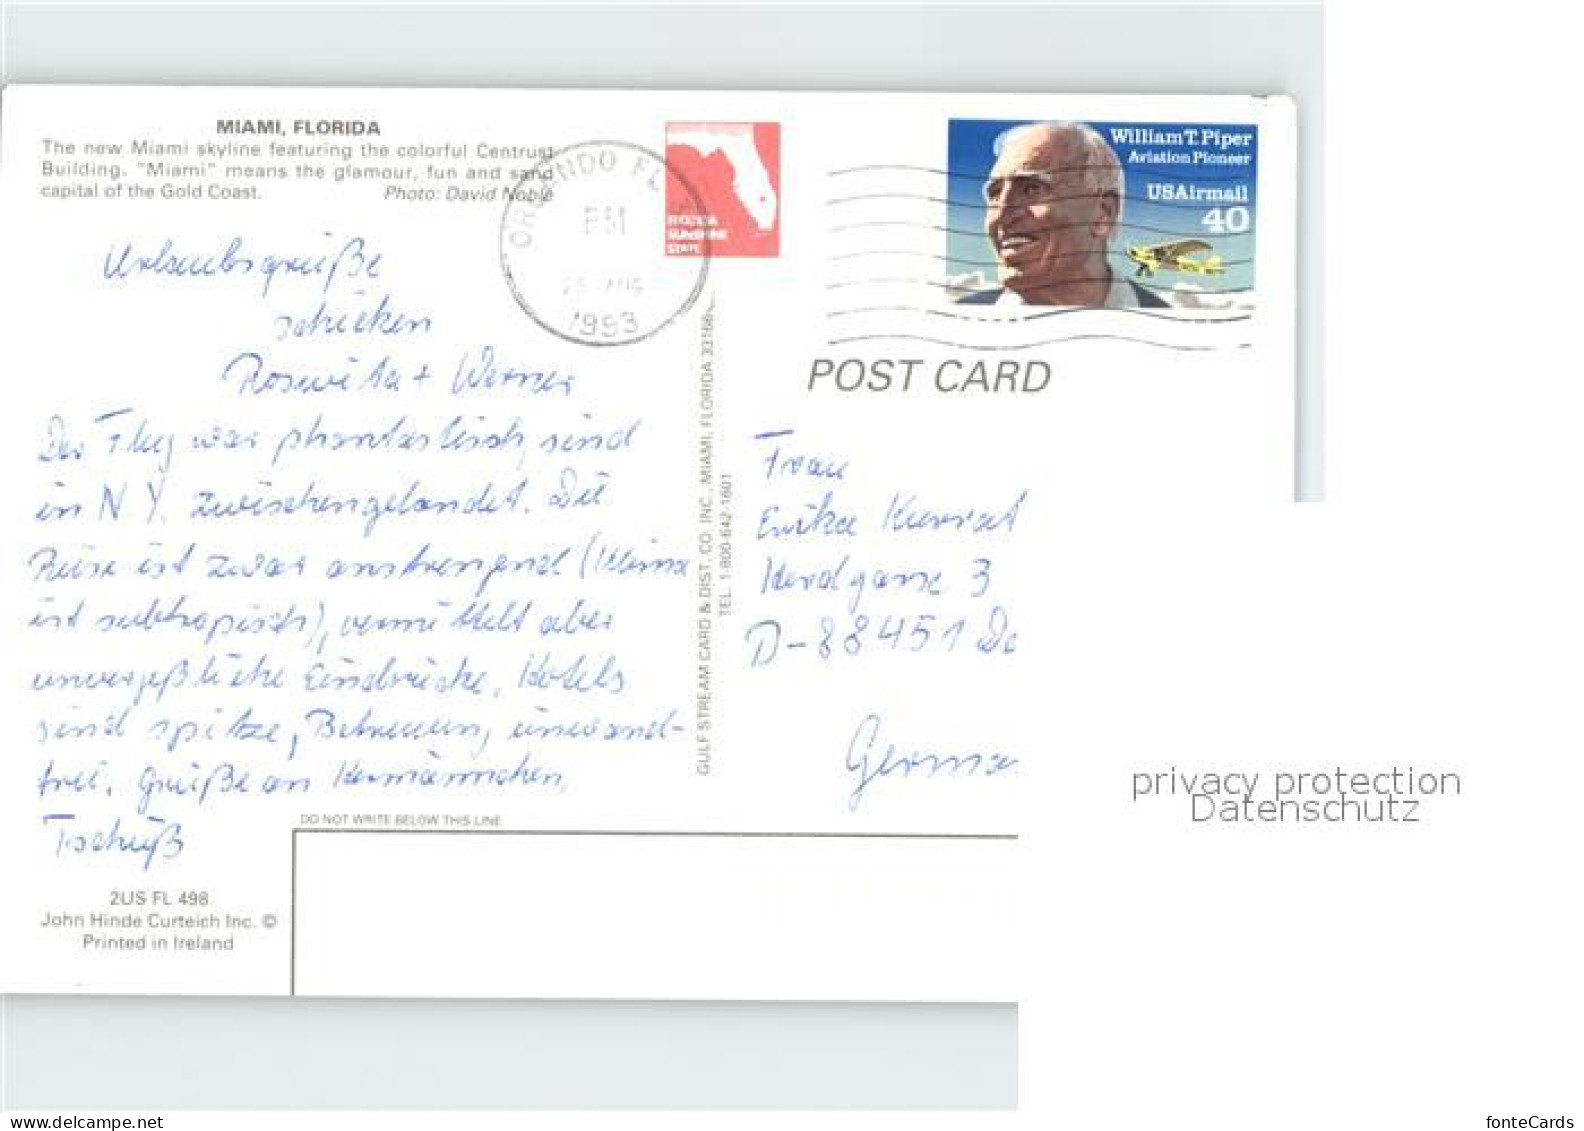 MIAMI, FLORIDA
The new Miami skyline featuring the colorful Centrust
Building. "Miami" means the glamour, fun and sand
capital of the Gold Coast. Photo: David Noble
Urlaubsgrüße
schicken
Roswitha + Werner
Der Flug war phantastisch, sind
in N.Y. zwischengelandet. Die
Reise ist zwar anstrengend (Klima
ist subtropisch), vermittelt aber
unvergeßliche Eindrücke. Hotels
sind spitze, Betreuung einwand-
frei. Grüße an
Tschüß
2US FL 498
John Hinde Curteich Inc. ©
Printed in Ireland
ORLANDO FL
PM
1993
FLORIDA
SUNSHINE
STATE
William T. Piper
Aviation Pioneer
USAirmail
40
POST CARD
GULF STREAM CARD & DIST. CO. INC., MIAMI, FLORIDA 33166
TEL. 1-800-642-1601
Frau
Erika
3
D-88451
German
DO NOT WRITE BELOW THIS LINE
privacy protection
Datenschutz
www.delcampe.net
fonteCards